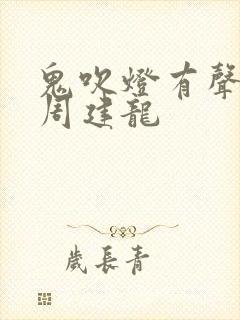 鬼吹燈有聲
周建龍
歲長青